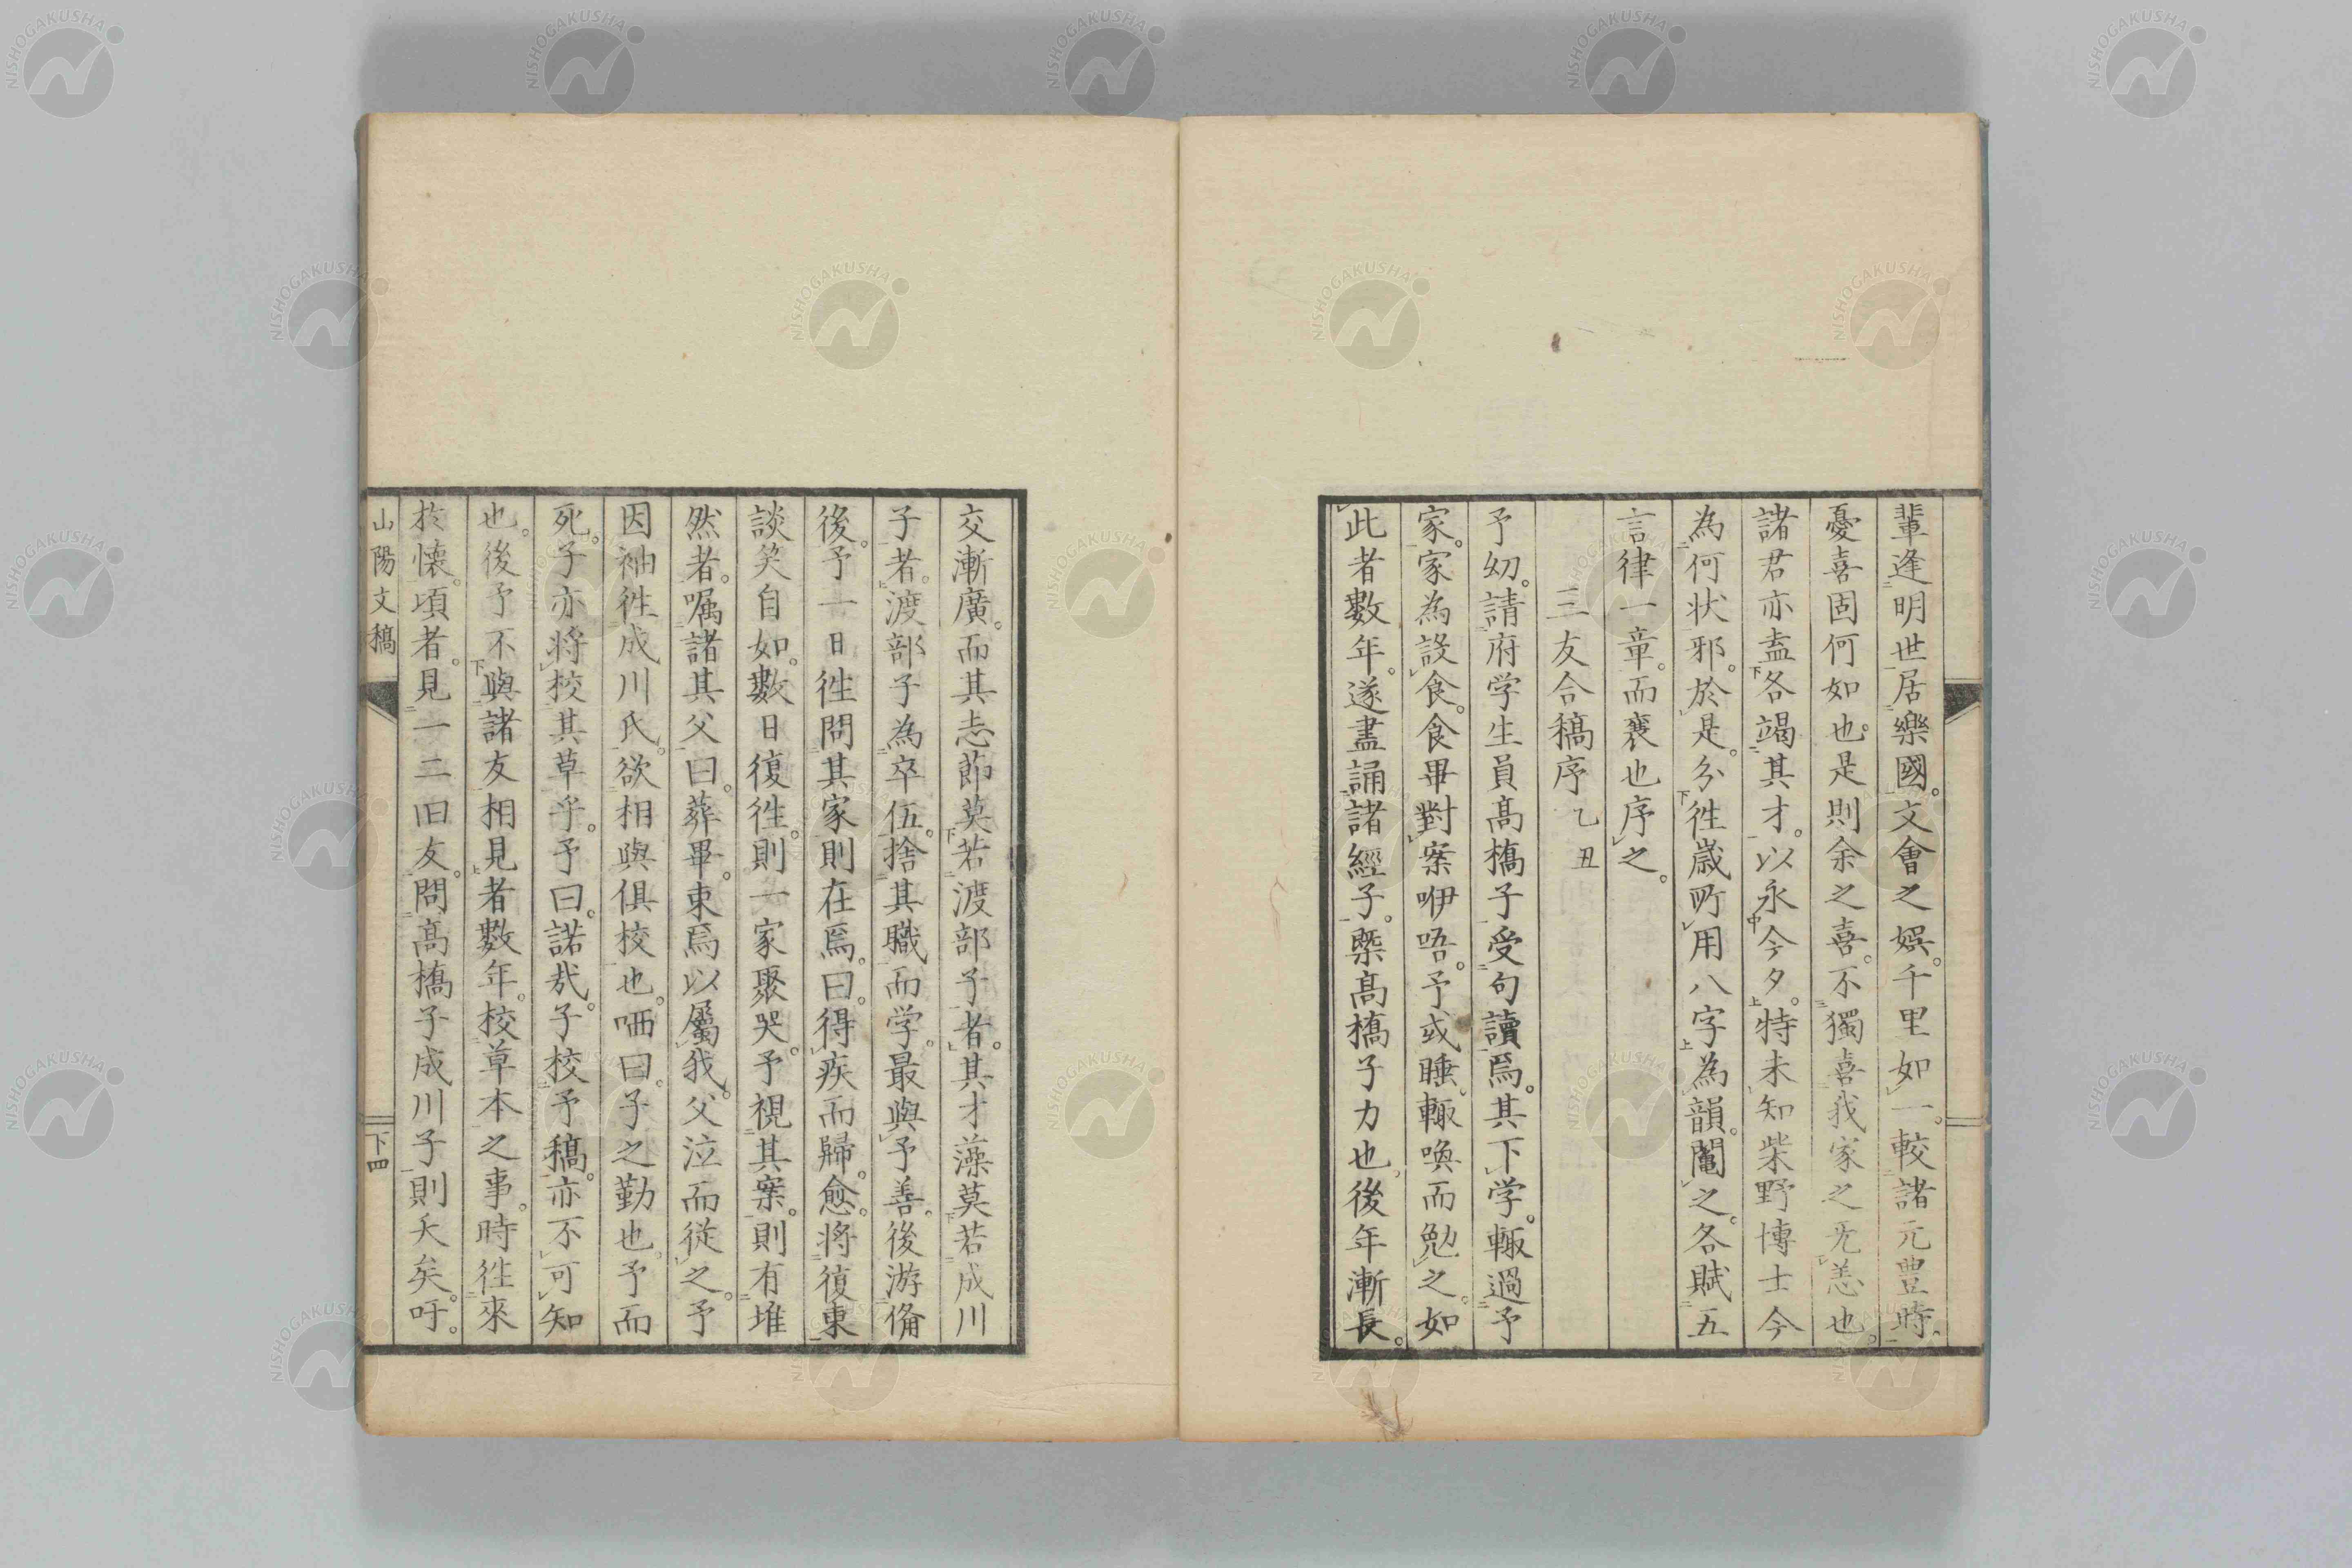 輩逢明世居樂國。文會之娯。千里如一。較諸元豊時。
憂喜固何如也。是則余之喜。不獨喜我家之无恙也。
諸君亦盍各竭其才。以永今夕。特未知柴野博士今
為何状邪。於是。分徃歳所用八字為韻。鬮之。各賦五
言律一章。而襃也序之。
三友合稿序 乙丑
予幼。請府学生員髙橋子受句讀焉。其下学。輙過予
家。家為設食。食畢對案咿唔。予或睡。輙喚而勉之。如
此者數年。遂盡誦諸經子。槩髙橋子力也。後年漸長。
交漸廣。而其志節莫若渡部子者。其才藻莫若成川
子者。渡部子為卒伍。捨其職而学。最與予善。後游備
後。予一日徃問其家則在焉。曰。得疾而歸。愈。将復東
談笑自如。數日復徃。則一家聚哭。予視其案。則有堆
然者。嘱諸其父曰。葬畢。東焉以屬我。父泣而従之。予
因袖徃成川氏。欲相與俱校也。哂曰。子之勤也。予而
死。子亦将校其草乎。予曰。諾哉。子校予稿。亦不可知
也。後予不與諸友相見者數年。校草本之事。時徃來
於懐。頃者。見一二旧友。問髙橋子成川子則夭矣。吁。
山陽文稿
下四
NISHOGAKUSHA